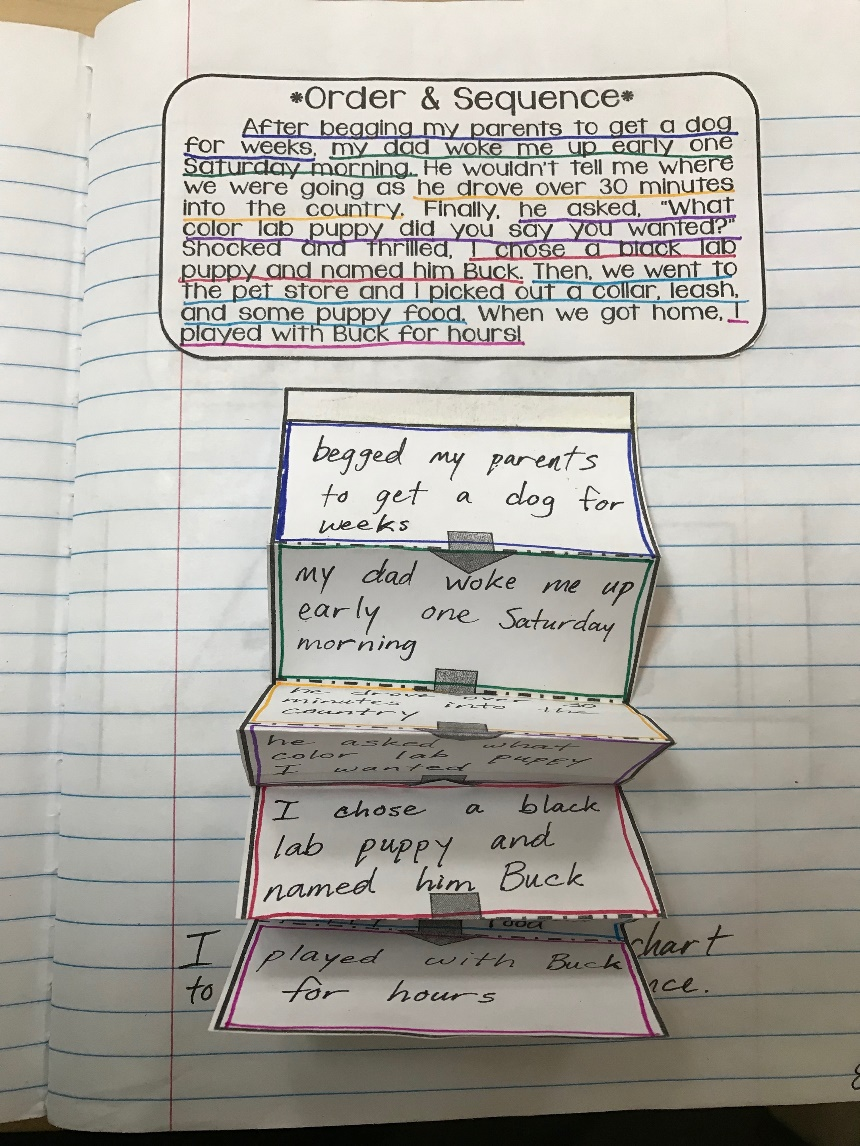 *Order & Sequence*
After begging my parents to get a dog
for weeks, my dad woke me up early one
Saturday morning. He wouldn't tell me where
we were going as he drove over 30 minutes
into the country. Finally, he asked, "What
color lab puppy did you say you wanted?"
Shocked and thrilled, I chose a black lab
puppy and named him Buck. Then, we went to
the pet store and I picked out a collar, leash,
and some puppy food. When we got home, I
played with Buck for hours!
begged my parents
to get a dog for
weeks
my dad woke me up
early one Saturday
morning
he drove over 30
minutes into the
country
he asked what
color lab puppy
I wanted
I chose a black
lab puppy and
named him Buck
food
I chart
played with Buck
to
for hours